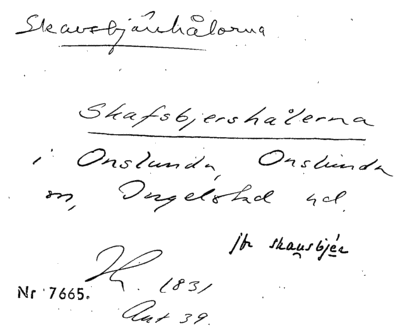 Skavsbjärhålorna
Skafsbjershålerna
i Onslunda, Onslunda
sn, Ingelstad hd.
jfr skausbjér
1831
Nr 7665.
Akt 39.